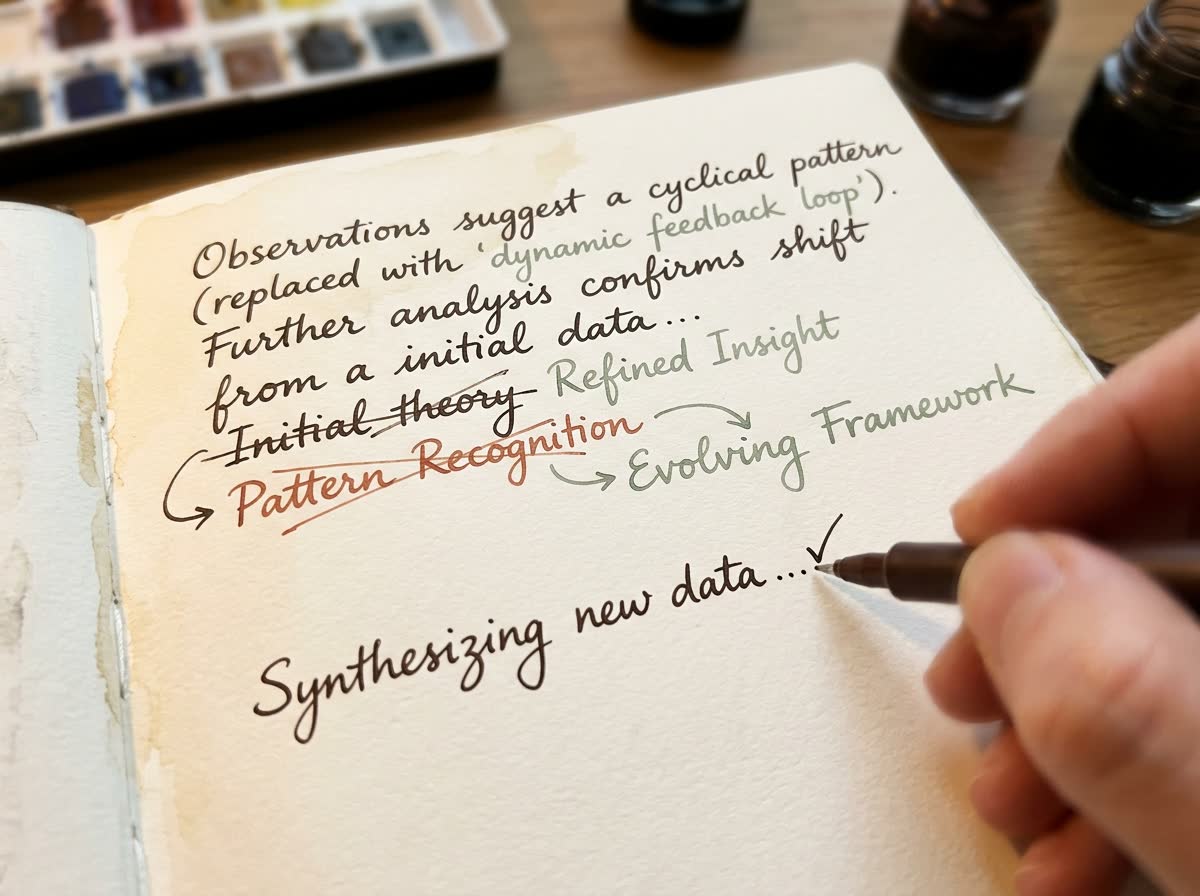 Observations suggest a cyclical pattern
(replaced with 'dynamic feedback loop').
Further analysis confirms shift
from a initial data...
Initial theory Refined Insight
Pattern Recognition Evolving Framework
Synthesizing new data...